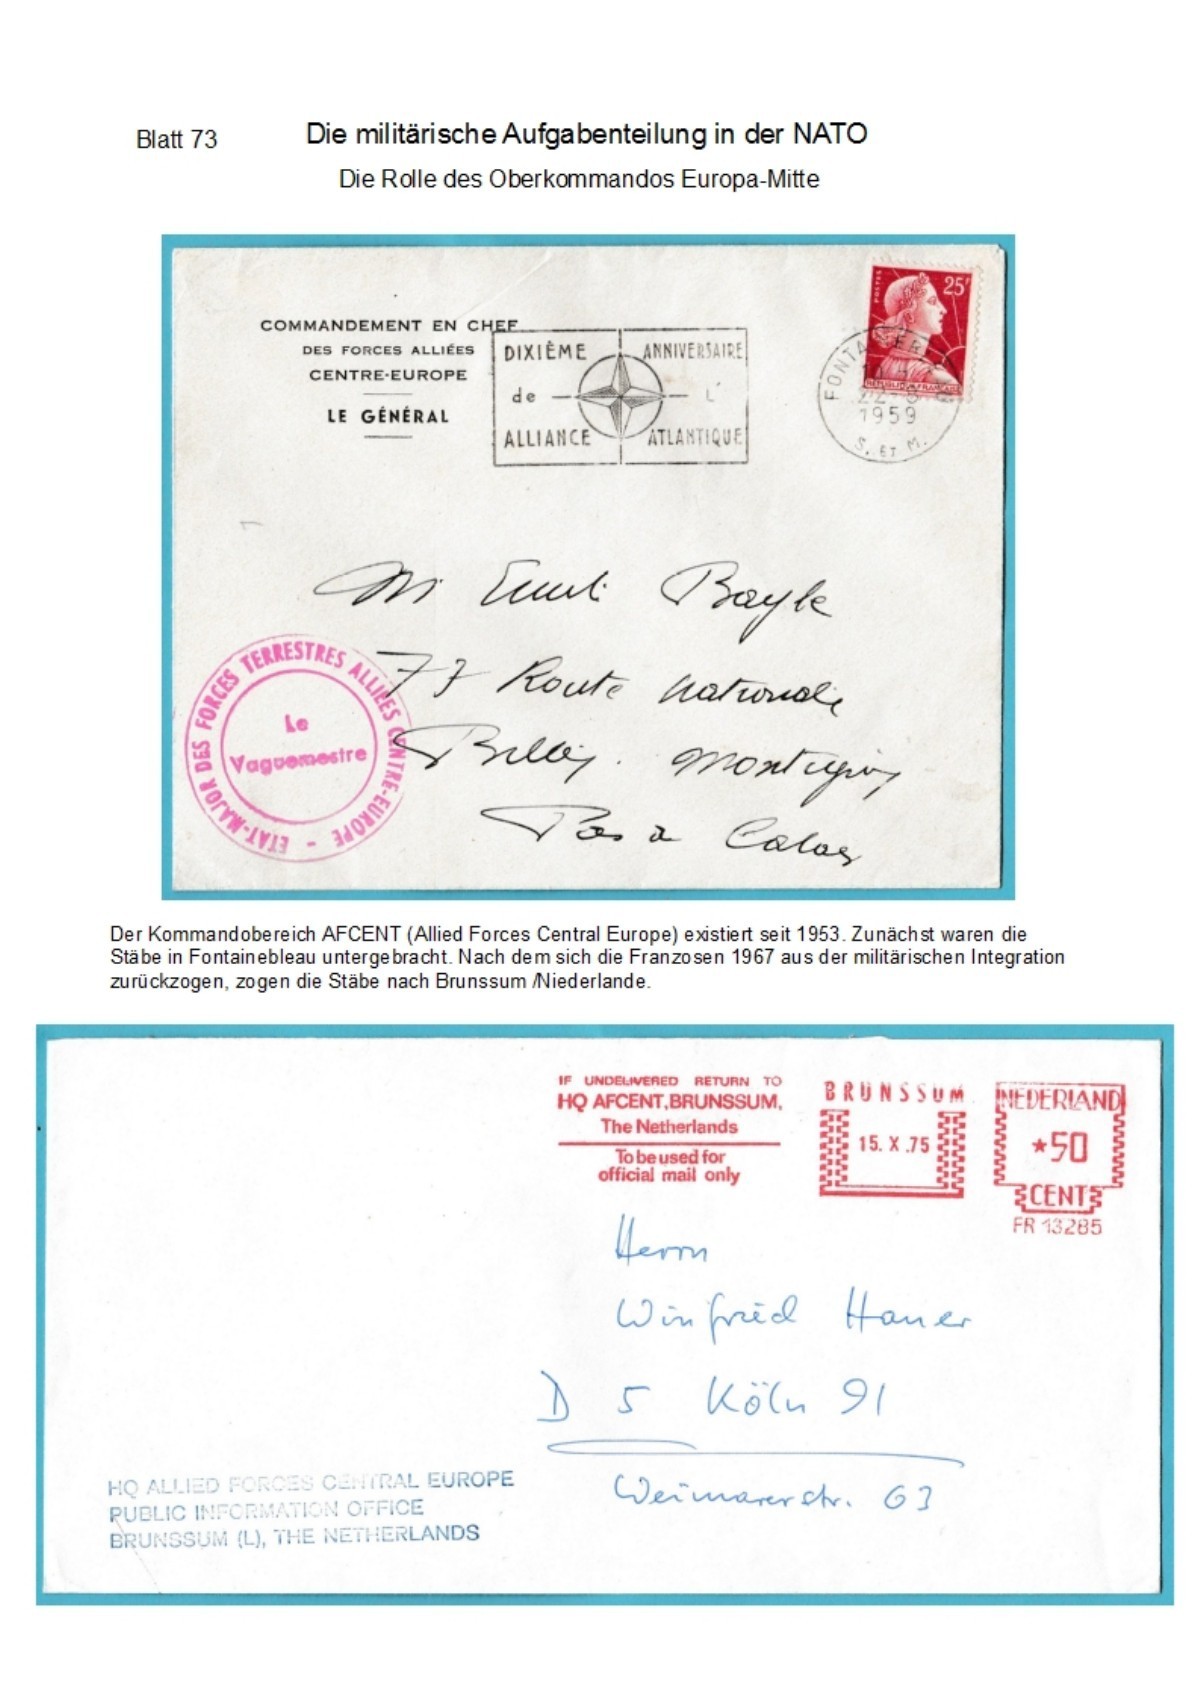 Blatt 73
Die militärische Aufgabenteilung in der NATO
Die Rolle des Oberkommandos Europa-Mitte
COMMANDEMENT EN CHEF
DES FORCES ALLIÉES
CENTRE-EUROPE
LE GÉNÉRAL
DIXIÈME ANNIVERSAIRE
de L'
ALLIANCE ATLANTIQUE
POSTES 25F
REPUBLIQUE FRANÇAISE
1959
S. ET M.
Bayle
77 Route Nationale
Billy Montigny
Pas de Calais
ETAT-MAJOR DES FORCES TERRESTRES ALLIEES CENTRE-EUROPE -
Le
Vaguemestre
Der Kommandobereich AFCENT (Allied Forces Central Europe) existiert seit 1953. Zunächst waren die
Stäbe in Fontainebleau untergebracht. Nach dem sich die Franzosen 1967 aus der militärischen Integration
zurückzogen, zogen die Stäbe nach Brunssum /Niederlande.
IF UNDELIVERED RETURN TO
HQ AFCENT, BRUNSSUM,
The Netherlands
To be used for
official mail only
BRUNSSUM
15. X .75
NEDERLAND
*50
CENT
FR 13285
Herrn
Winfried Hauer
D 5 Köln 91
Weimarerstr. 63
HQ ALLIED FORCES CENTRAL EUROPE
PUBLIC INFORMATION OFFICE
BRUNSSUM (L), THE NETHERLANDS